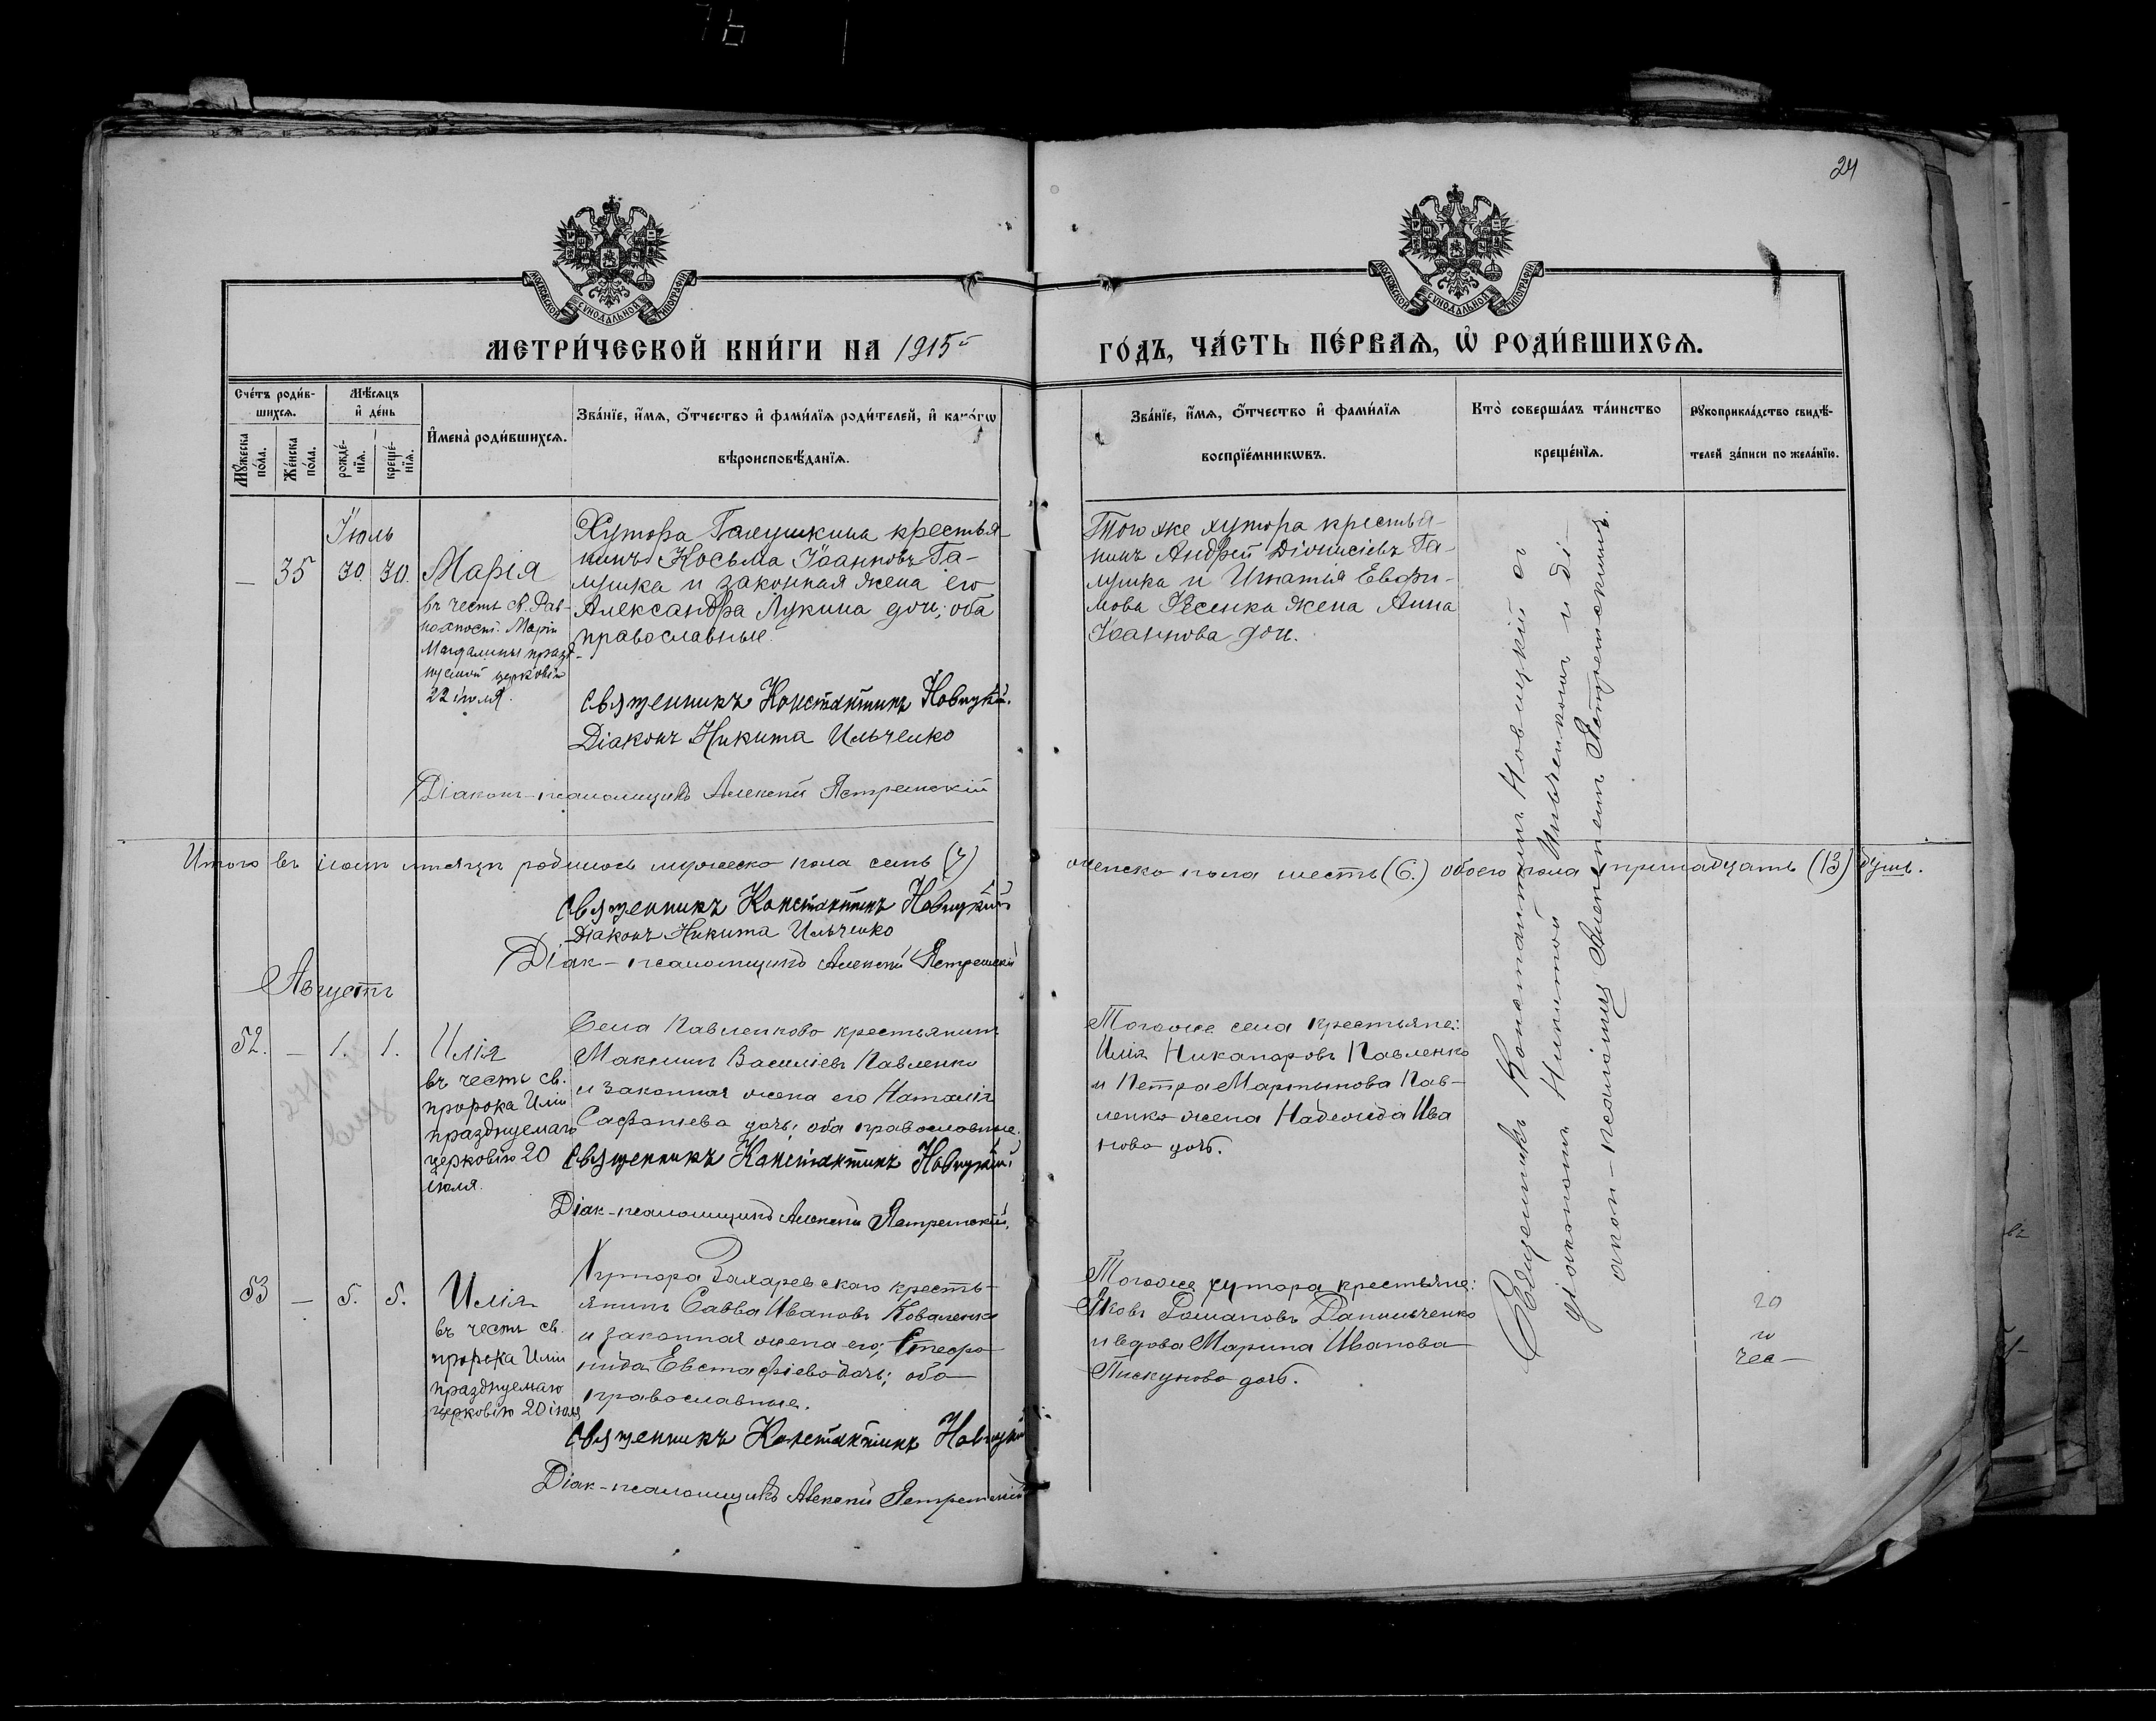 24
МОСКОВСКОЙ СѴНОДАЛЬНОЙ ТИПОГРАФІИ
МОСКОВСКОЙ СѴНОДАЛЬНОЙ ТИПОГРАФІИ
МЕТРИ́ЧЕСКОЙ КНИ́ГИ НА 1915
ГО́ДЪ, ЧА́СТЬ ПЕ́РВАѦ, Ѡ҆ РОДИ́ВШИХСѦ.
Сче́тъ роди́в-
шихсѧ.
Мꙋ́жеска по́ла.
Же́нска по́ла.
Мѣ́сѧцъ и҆ де́нь
рожде́-нїѧ.
креще́-нїѧ.
И҆мена̀ роди́вшихсѧ.
Зва́нїе, и҆́мѧ, ѻ҆́тчество и҆ фами́лїѧ роди́телей, и҆ како́гѡ
вѣроисповѣ́данїѧ.
Зва́нїе, и҆́мѧ, ѻ҆́тчество и҆ фами́лїѧ
воспрїе́мникѡвъ.
Кто̀ соверша́лъ та́инство
креще́нїѧ.
Рꙋкоприкла́дство свидѣ́-
телей за́писи по жела́нїю.
Іюль
— 35 30. 30.
Марія
въ честь св. Рав-
ноапост. Маріи
Магдалины празд-
нуемой церковію
22 іюля.
Хутора Галушкина крестья-
нинъ Косьма Іоанновъ Га-
лушка и законная жена его
Александра Лукина доч.; оба
православные.
Священникъ Константинъ Новицкій.
Діаконъ Никита Ильченко
Діаконъ-псаломщикъ Алексій Ястремскій
Того же хутора крестья-
нинъ Андрей Діонисіевъ Га-
лушка и Игнатія Евфи-
мова жена Анна
Іоаннова доч.
Итого въ іюлѣ мѣсяцѣ родилось мужеско пола семь (7)
женско пола шесть (6.) обоего пола тринадцать (13) душъ.
Священникъ Константинъ Новицкій
Діаконъ Никита Ильченко
Діак-псаломщикъ Алексій Ястремскій
Августъ
52. — 1. 1.
Илія
въ честь св.
пророка Иліи
празднуемаго
церковію 20
іюля.
Села Павленково крестьянинъ
Максимъ Василіевъ Павленко
и законная жена его Наталія
дочь; оба православные.
Священникъ Константинъ Новицкій
Діак-псаломщикъ Алексій Ястремскій.
Тогоже села крестьяне:
Илія Никаноровъ Павленко
и Петра Мартынова Пав-
ленко жена Надежда Ива
нова дочь.
53 — 5. 5.
Илія
въ честь св.
пророка Иліи
празднуемаго
церковію 20 іюля
Хутора Захаревскаго кресть-
янинъ Савва Ивановъ Коваленко
и законная жена его; Стефа
нида Евстафіева дочь; оба
православные.
Священникъ Константинъ Новицкій
Діак-псаломщикъ Алексій Ястремскій
Тогоже хутора крестьяне:
Яковъ Романовъ Данильченко
и вдова Марина Иванова
Пискунова дочь.
Священникъ Константинъ Новицкій съ
діакономъ Никитой Ильченкомъ и ді-
акон-псаломщ Алексіемъ Ястремскимъ.
20